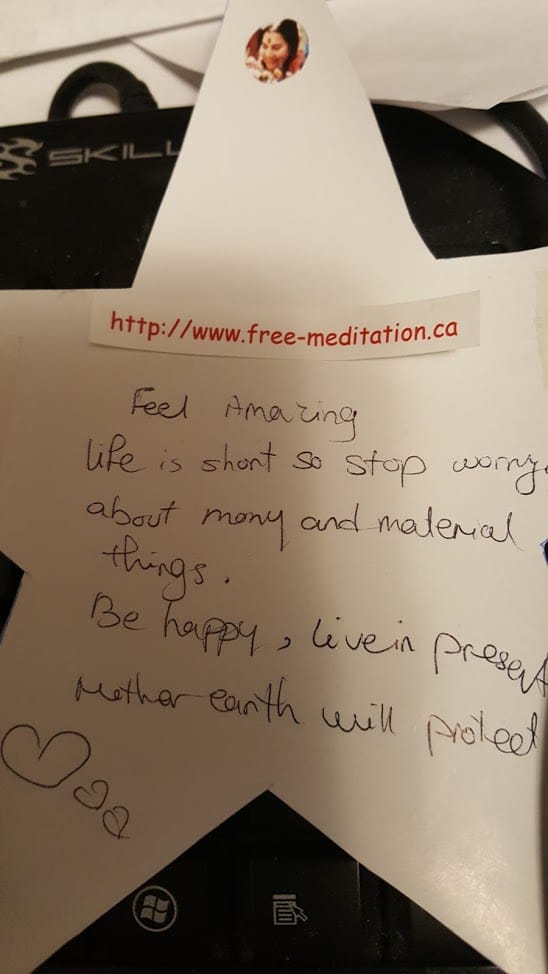 SKILL
http://www.free-meditation.ca
Feel Amazing
life is short so stop worry
about mony and material
things.
Be happy, live in present
Mother earth will protect